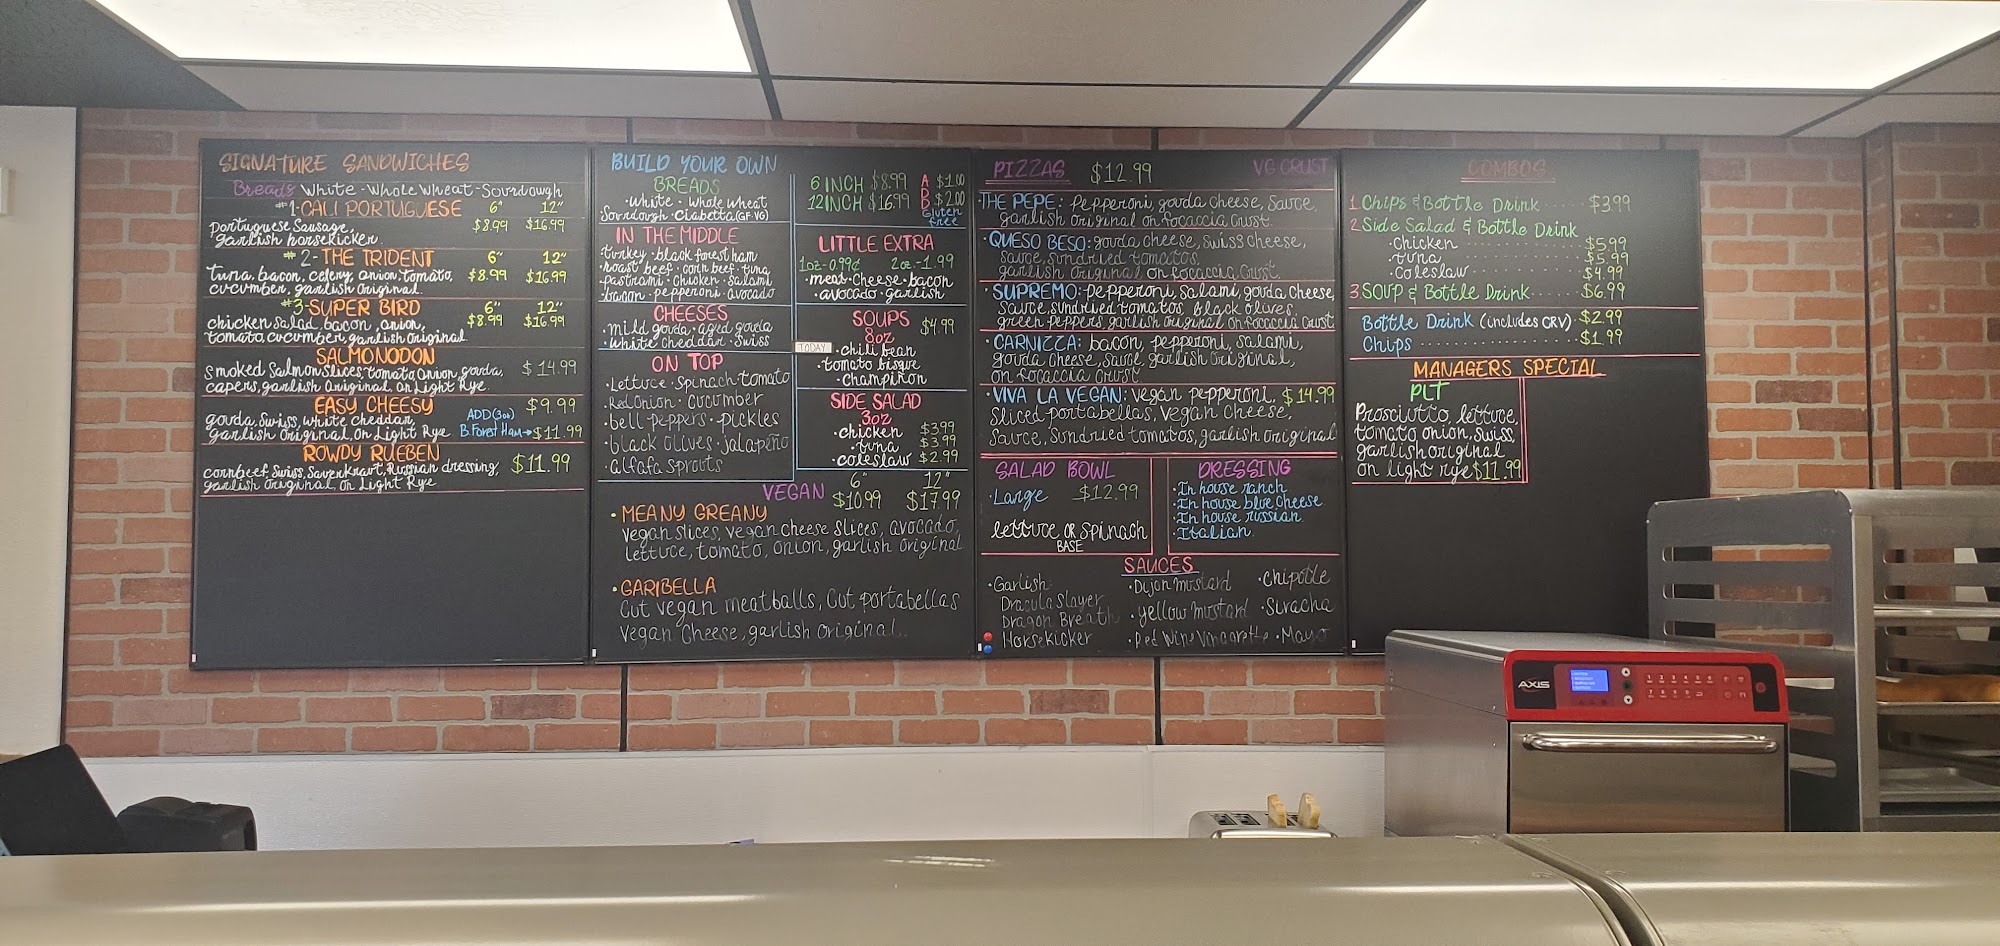 SIGNATURE SANDWICHES
Breads White - Whole Wheat - Sourdough
#1-CALI PORTUGUESE 6" 12"
Portuguese Sausage, $8.99 $16.99
garlish horsekicker
#2-THE TRIDENT 6" 12"
tuna, bacon, celery, onion, tomato, $8.99 $16.99
cucumber, garlish original
#3-SUPER BIRD 6" 12"
chicken salad, bacon, onion, $8.99 $16.99
tomato, cucumber, garlish original
SALMONODON
Smoked Salmon Slices, tomato, onion, gouda, $14.99
capers, garlish original, on Light Rye
EASY CHEESY $9.99
gouda, Swiss, white cheddar, ADD (3oz)
garlish original, on Light Rye B.Forest Ham→$11.99
ROWDY RUEBEN
cornbeef, Swiss, Saverkravt, Russian dressing, $11.99
garlish original, on Light Rye
BUILD YOUR OWN
BREADS
·White · Whole Wheat
Sourdough · Ciabetta (GF·VG)
IN THE MIDDLE
turkey · black forest ham
·roast beef · corn beef · tuna
pastrami · chicken · salami
bacon · pepperoni · avocado
CHEESES
·mild gouda · aged gouda
·White cheddar · Swiss
ON TOP
·Lettuce · Spinach · tomato
·Red Onion · Cucumber
·bell-peppers · pickles
·black olives · jalapeño
·alfafa sprouts
6 INCH $8.99
12 INCH $16.99
A $1.00
D
B $2.00
Gluten
free
LITTLE EXTRA
1oz-0.99¢ 2oz.-1.99
meat · cheese · bacon
·avocado · garlish
SOUPS
8oz $4.99
TODAY
·chili bean
·tomato bisque
·champiñon
SIDE SALAD
3oz
·chicken $3.99
·tuna $3.99
·coleslaw $2.99
VEGAN 6" 12"
$10.99 $17.99
·MEANY GREANY
vegan slices, vegan cheese slices, avocado,
lettuce, tomato, onion, garlish original
·GARIBELLA
Cut vegan meatballs, Cut portabellas
vegan Cheese, garlish original.
PIZZAS $12.99 VG CRUST
·THE PEPE: pepperoni, gouda cheese, Sauce,
garlish original on focaccia Crust.
·QUESO BESO: gouda cheese, swiss cheese,
Sauce, sundried tomatos,
garlish original on focaccia Crust.
·SUPREMO: pepperoni, salami, gouda cheese,
Sauce, sundried tomatos, black olives,
green peppers, garlish original on focaccia Crust
·CARNIZZA: bacon, pepperoni, salami,
gouda cheese, Sauce, garlish original,
on focaccia Crust.
·VIVA LA VEGAN: vegan pepperoni, $14.99
Sliced portabellas, vegan cheese,
Sauce, Sundried tomatos, garlish original
SALAD BOWL
·Large $12.99
lettuce OR Spinach
BASE
DRESSING
·In house ranch
·In house blue cheese
·In house russian
·Italian
SAUCES
·Garlish
Dracula Slayer
Dragon Breath
Horsekicker
·Dijon mustard
·yellow mustard
·Red Wine Vinaigrette
·Chipotle
·Siracha
·Mayo
COMBOS
1 Chips & Bottle Drink ····· $3.99
2 Side Salad & Bottle Drink
·chicken ·········· $5.99
·tuna ·········· $5.99
·Coleslaw ·········· $4.99
3 SOUP & Bottle Drink ····· $6.99
Bottle Drink (includes CRV) · $2.99
Chips ·········· $1.99
MANAGERS SPECIAL
PLT
Prosciutto, lettuce,
tomato, onion, swiss,
garlish original
on light rye $11.99
AXIS